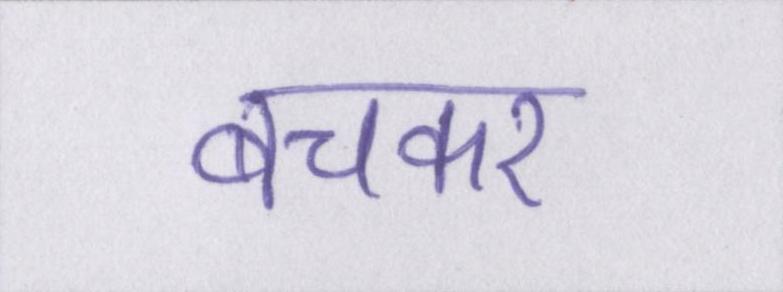 बचकर